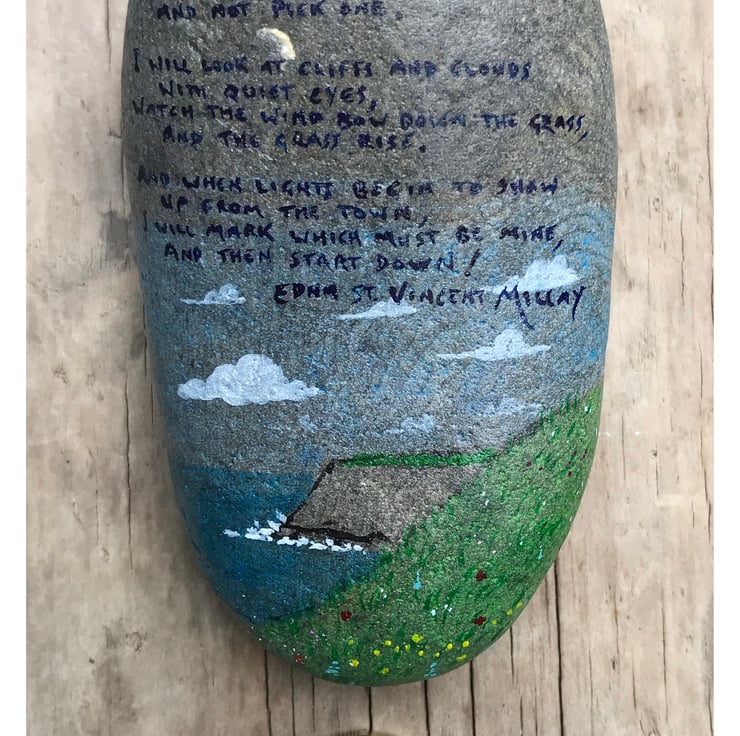 AND NOT PICK ONE.
I WILL LOOK AT CLIFFS AND CLOUDS
WITH QUIET EYES,
WATCH THE WIND BOW DOWN THE GRASS,
AND THE GRASS RISE.
AND WHEN LIGHTS BEGIN TO SHOW
UP FROM THE TOWN,
I WILL MARK WHICH MUST BE MINE,
AND THEN START DOWN!
EDNA ST. VINCENT MILLAY